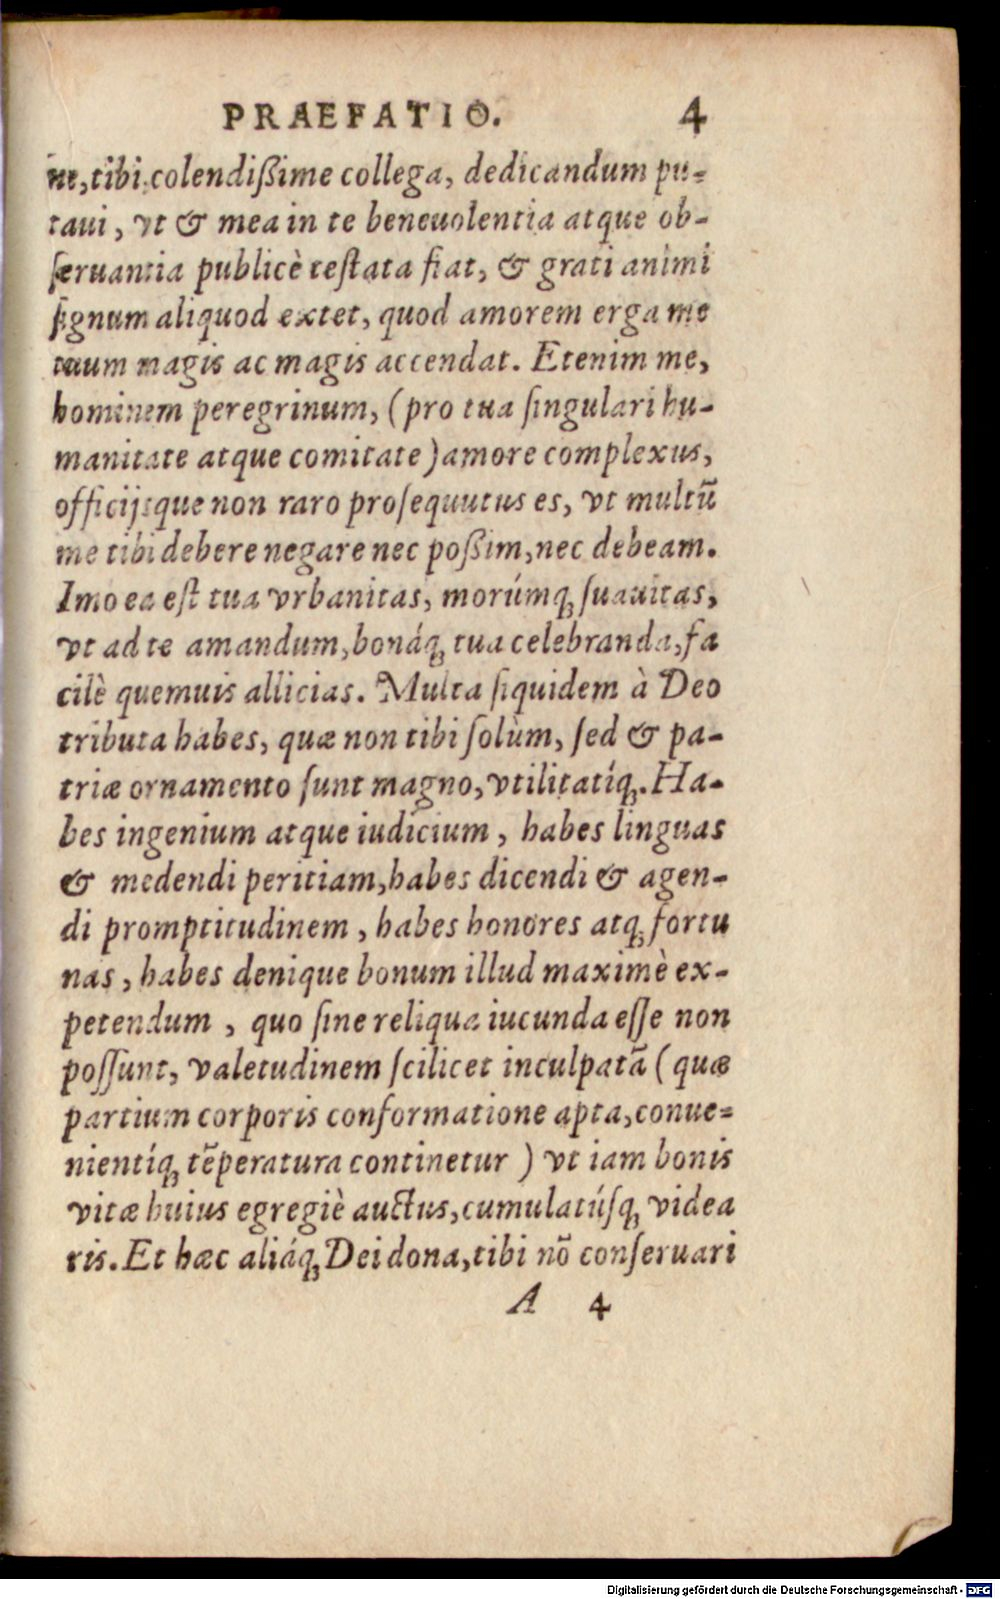 PRAEFATIO. 4
tibi colendißime collega, dedicandum pu-
taui, vt & mea in te beneuolentia atque ob-
ſeruantia publicè teſtata fiat, & grati animi
ſignum aliquod extet, quod amorem erga me
tuum magis ac magis accendat. Etenim me,
hominem peregrinum, (pro tua ſingulari hu-
manitate atque comitate) amore complexus,
officijsque non raro proſequutus es, vt multũ
me tibi debere negare nec poßim, nec debeam.
Imo ea eſt tua vrbanitas, morúmq; ſuauitas,
vt ad te amandum, bonáq; tua celebranda, fa
cilè quemuis allicias. Multa ſiquidem à Deo
tributa habes, quæ non tibi ſolùm, ſed & pa-
triæ ornamento ſunt magno, vtilitatíq;. Ha-
bes ingenium atque iudicium, habes linguas
& medendi peritiam, habes dicendi & agen-
di promptitudinem, habes honores atq; fortu
nas, habes denique bonum illud maximè ex-
petendum, quo ſine reliqua iucunda eſſe non
poſſunt, valetudinem ſcilicet inculpatã (quæ
partium corporis conformatione apta, conue-
nientíq; tẽperatura continetur) vt iam bonis
vitæ huius egregiè auctus, cumulatúſq; videa
ris. Et hæc aliáq; Dei dona, tibi nõ conſeruari
A 4
Digitalisierung gefördert durch die Deutsche Forschungsgemeinschaft - DFG